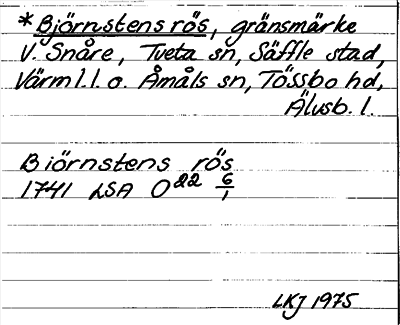 *Björnstens rös, gränsmärke
V. Snåre, Tveta sn, Säffle stad,
Värml.l. o. Åmåls sn, Tössbo hd,
Älvsb. l.
Biörnstens rös
1741 LSA O²² 6/1
LKJ 1975